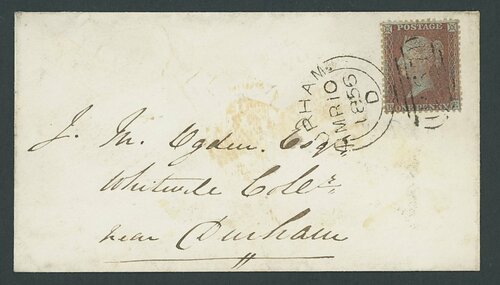 POSTAGE
ONE PENNY
DURHAM
MR 10
1856
D
J. M. Ogden, Esqr
Whitwell Collr.
near Durham